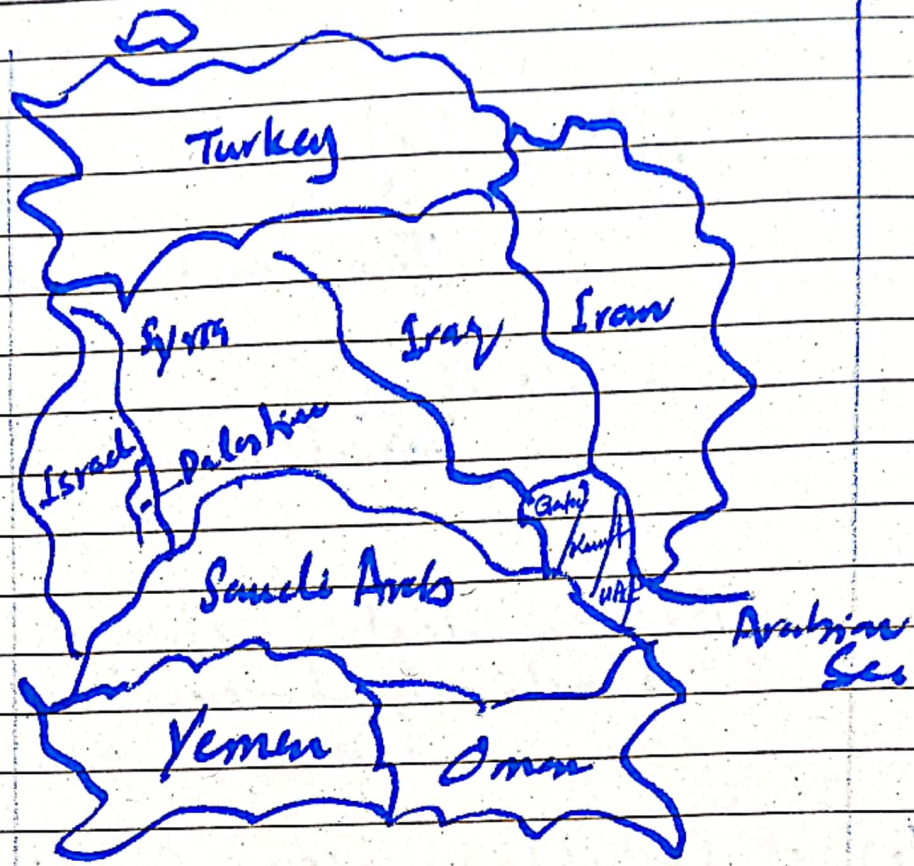 Turkey
Syria
Iraq
Iran
Israel
Palestine
Qatar
Kuwait
UAE
Saudi Arab
Arabian
Sea
Yemen
Oman